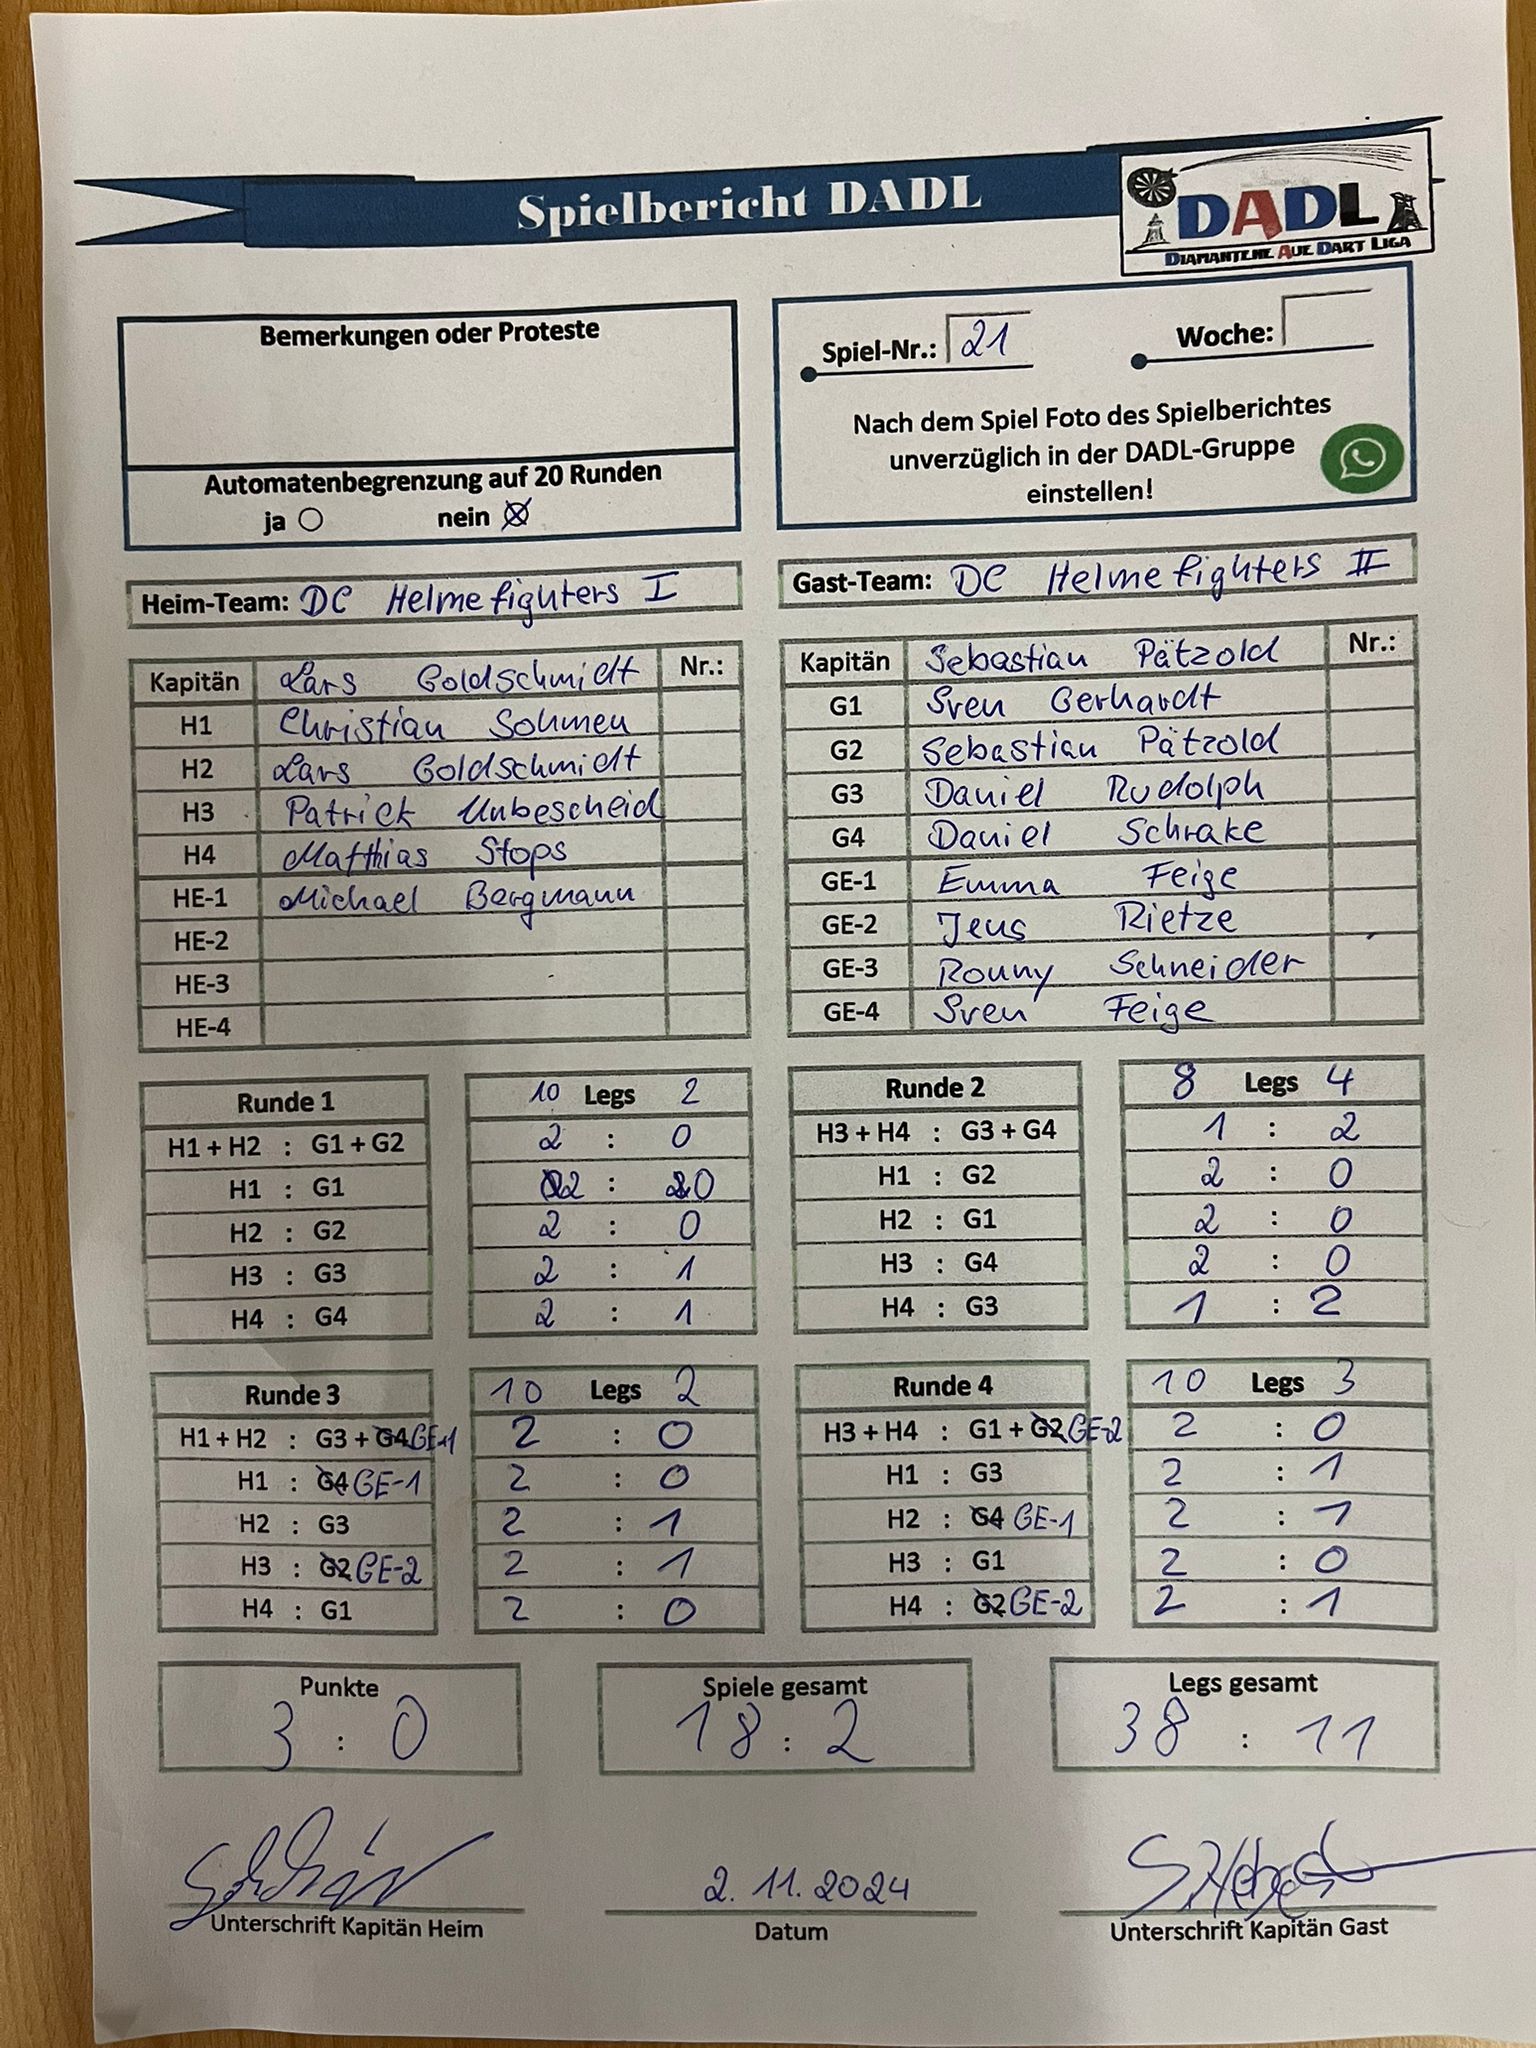 Spielbericht DADL
DADL
DIAMANTENE AUE DART LIGA
Bemerkungen oder Proteste
Automatenbegrenzung auf 20 Runden
ja nein
Spiel-Nr.: 21 Woche:
Nach dem Spiel Foto des Spielberichtes
unverzüglich in der DADL-Gruppe
einstellen!
Heim-Team: DC Helmefighters I
Gast-Team: DC Helmefighters II
Kapitän Lars Goldschmidt Nr.:
H1 Christian Sohmen
H2 Lars Goldschmidt
H3 Patrick Unbescheid
H4 Matthias Stops
HE-1 Michael Bergmann
HE-2
HE-3
HE-4
Kapitän Sebastian Pätzold Nr.:
G1 Sven Gerhardt
G2 Sebastian Pätzold
G3 Daniel Rudolph
G4 Daniel Schrake
GE-1 Emma Feige
GE-2 Jens Rietze
GE-3 Ronny Schneider
GE-4 Sven Feige
Runde 1 10 Legs 2
H1 + H2 : G1 + G2 2 : 0
H1 : G1 2 : 0
H2 : G2 2 : 0
H3 : G3 2 : 1
H4 : G4 2 : 1
Runde 2 8 Legs 4
H3 + H4 : G3 + G4 1 : 2
H1 : G2 2 : 0
H2 : G1 2 : 0
H3 : G4 2 : 0
H4 : G3 1 : 2
Runde 3 10 Legs 2
H1 + H2 : G3 + G4 GE-1 2 : 0
H1 : G4 GE-1 2 : 0
H2 : G3 2 : 1
H3 : G2 GE-2 2 : 1
H4 : G1 2 : 0
Runde 4 10 Legs 3
H3 + H4 : G1 + G2 GE-2 2 : 0
H1 : G3 2 : 1
H2 : G4 GE-1 2 : 1
H3 : G1 2 : 0
H4 : G2 GE-2 2 : 1
Punkte
3 : 0
Spiele gesamt
18 : 2
Legs gesamt
38 : 11
Unterschrift Kapitän Heim
2. 11. 2024
Datum
Unterschrift Kapitän Gast